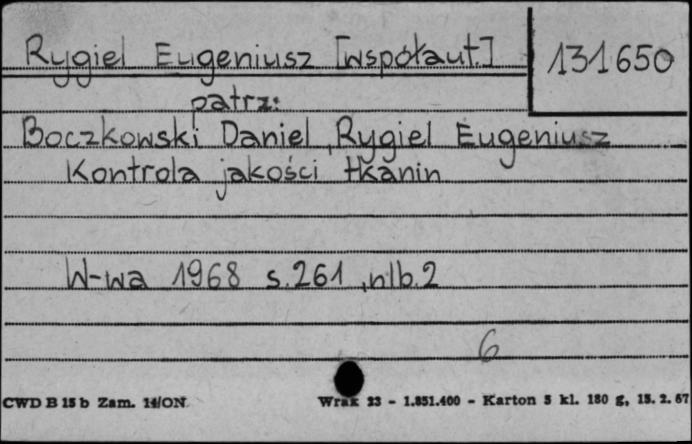 Rygiel Eugeniusz [współaut.] 131650
patrz:
Boczkowski Daniel, Rygiel Eugeniusz
Kontrola jakości tkanin
W-wa 1968 s.261, nlb.2
6
CWD B 15 b Zam. 14/ON Wrak 23 - 1.851.400 - Karton 5 kl. 180 g, 15. 2. 67